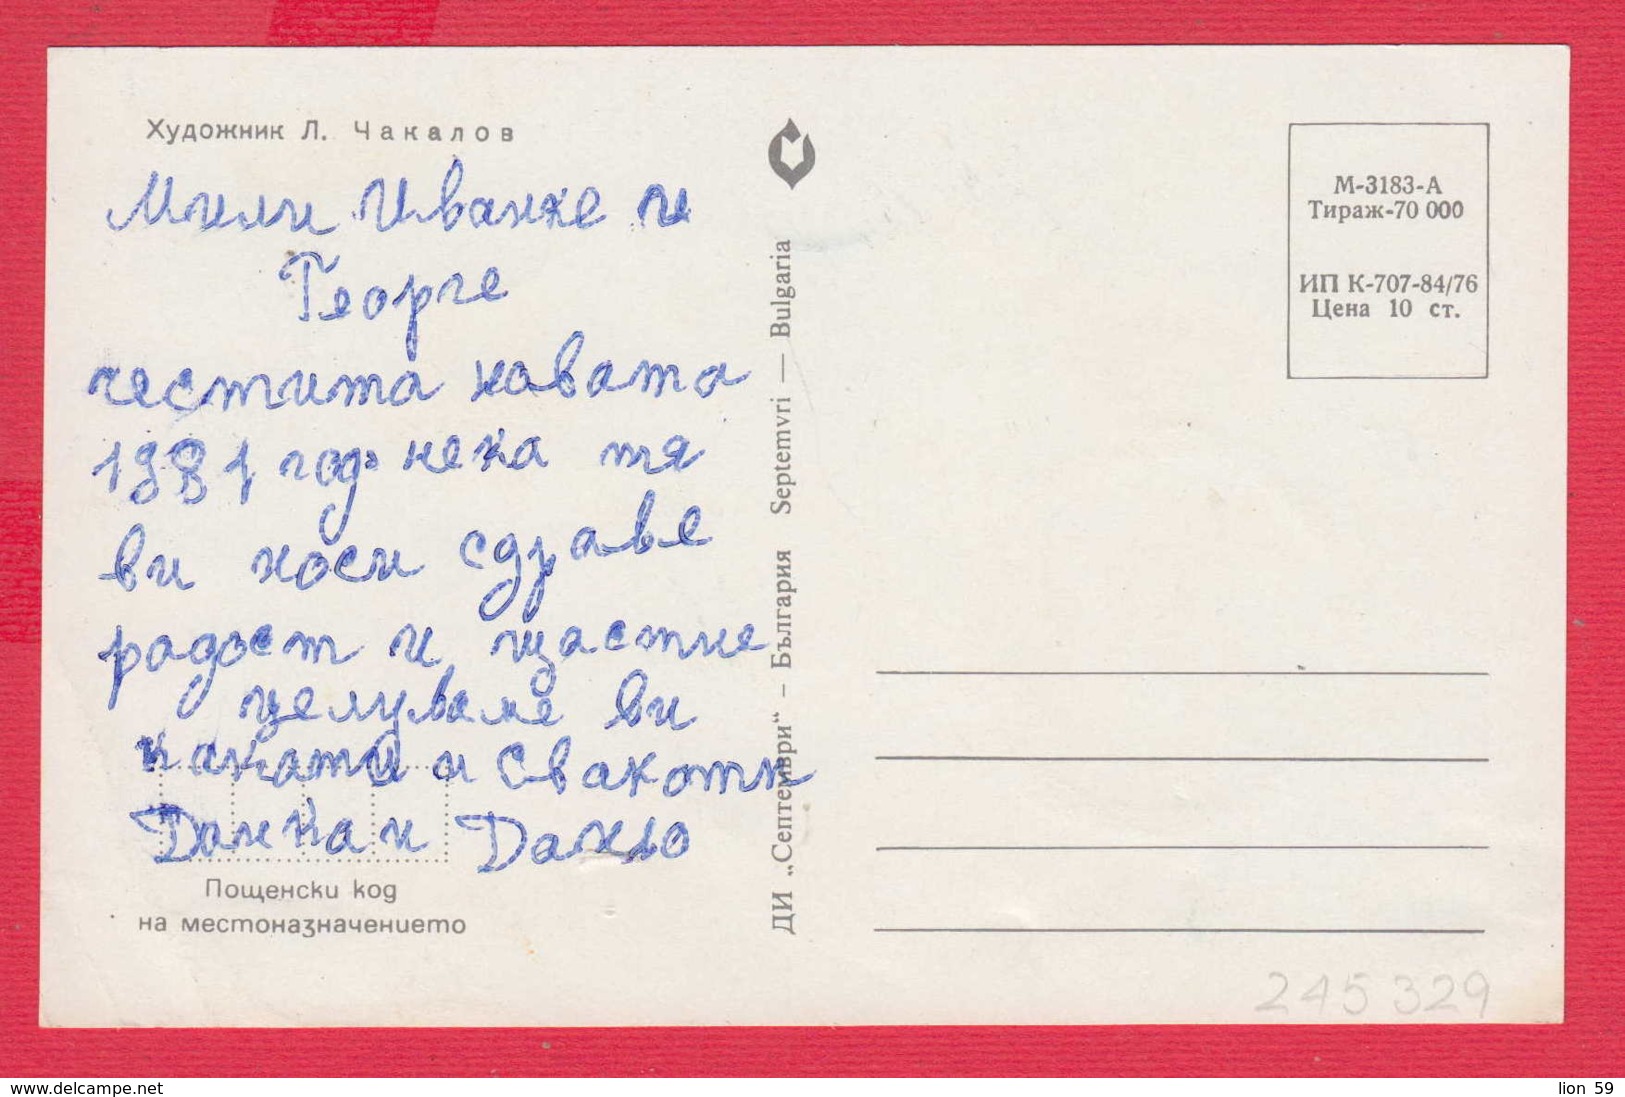 Художник Л. Чакалов
Мили Иванке и
Георге
честита новата
1981 год. нека тя
ви носи сдраве
радост и щастие
целуваме ви
какати и Свакоти
Данка и Даньо
Пощенски код
на местоназначението
ДИ „Септември“ – България Septemvri — Bulgaria
М-3183-А
Тираж-70 000
ИП К-707-84/76
Цена 10 ст.
245329
lion 59